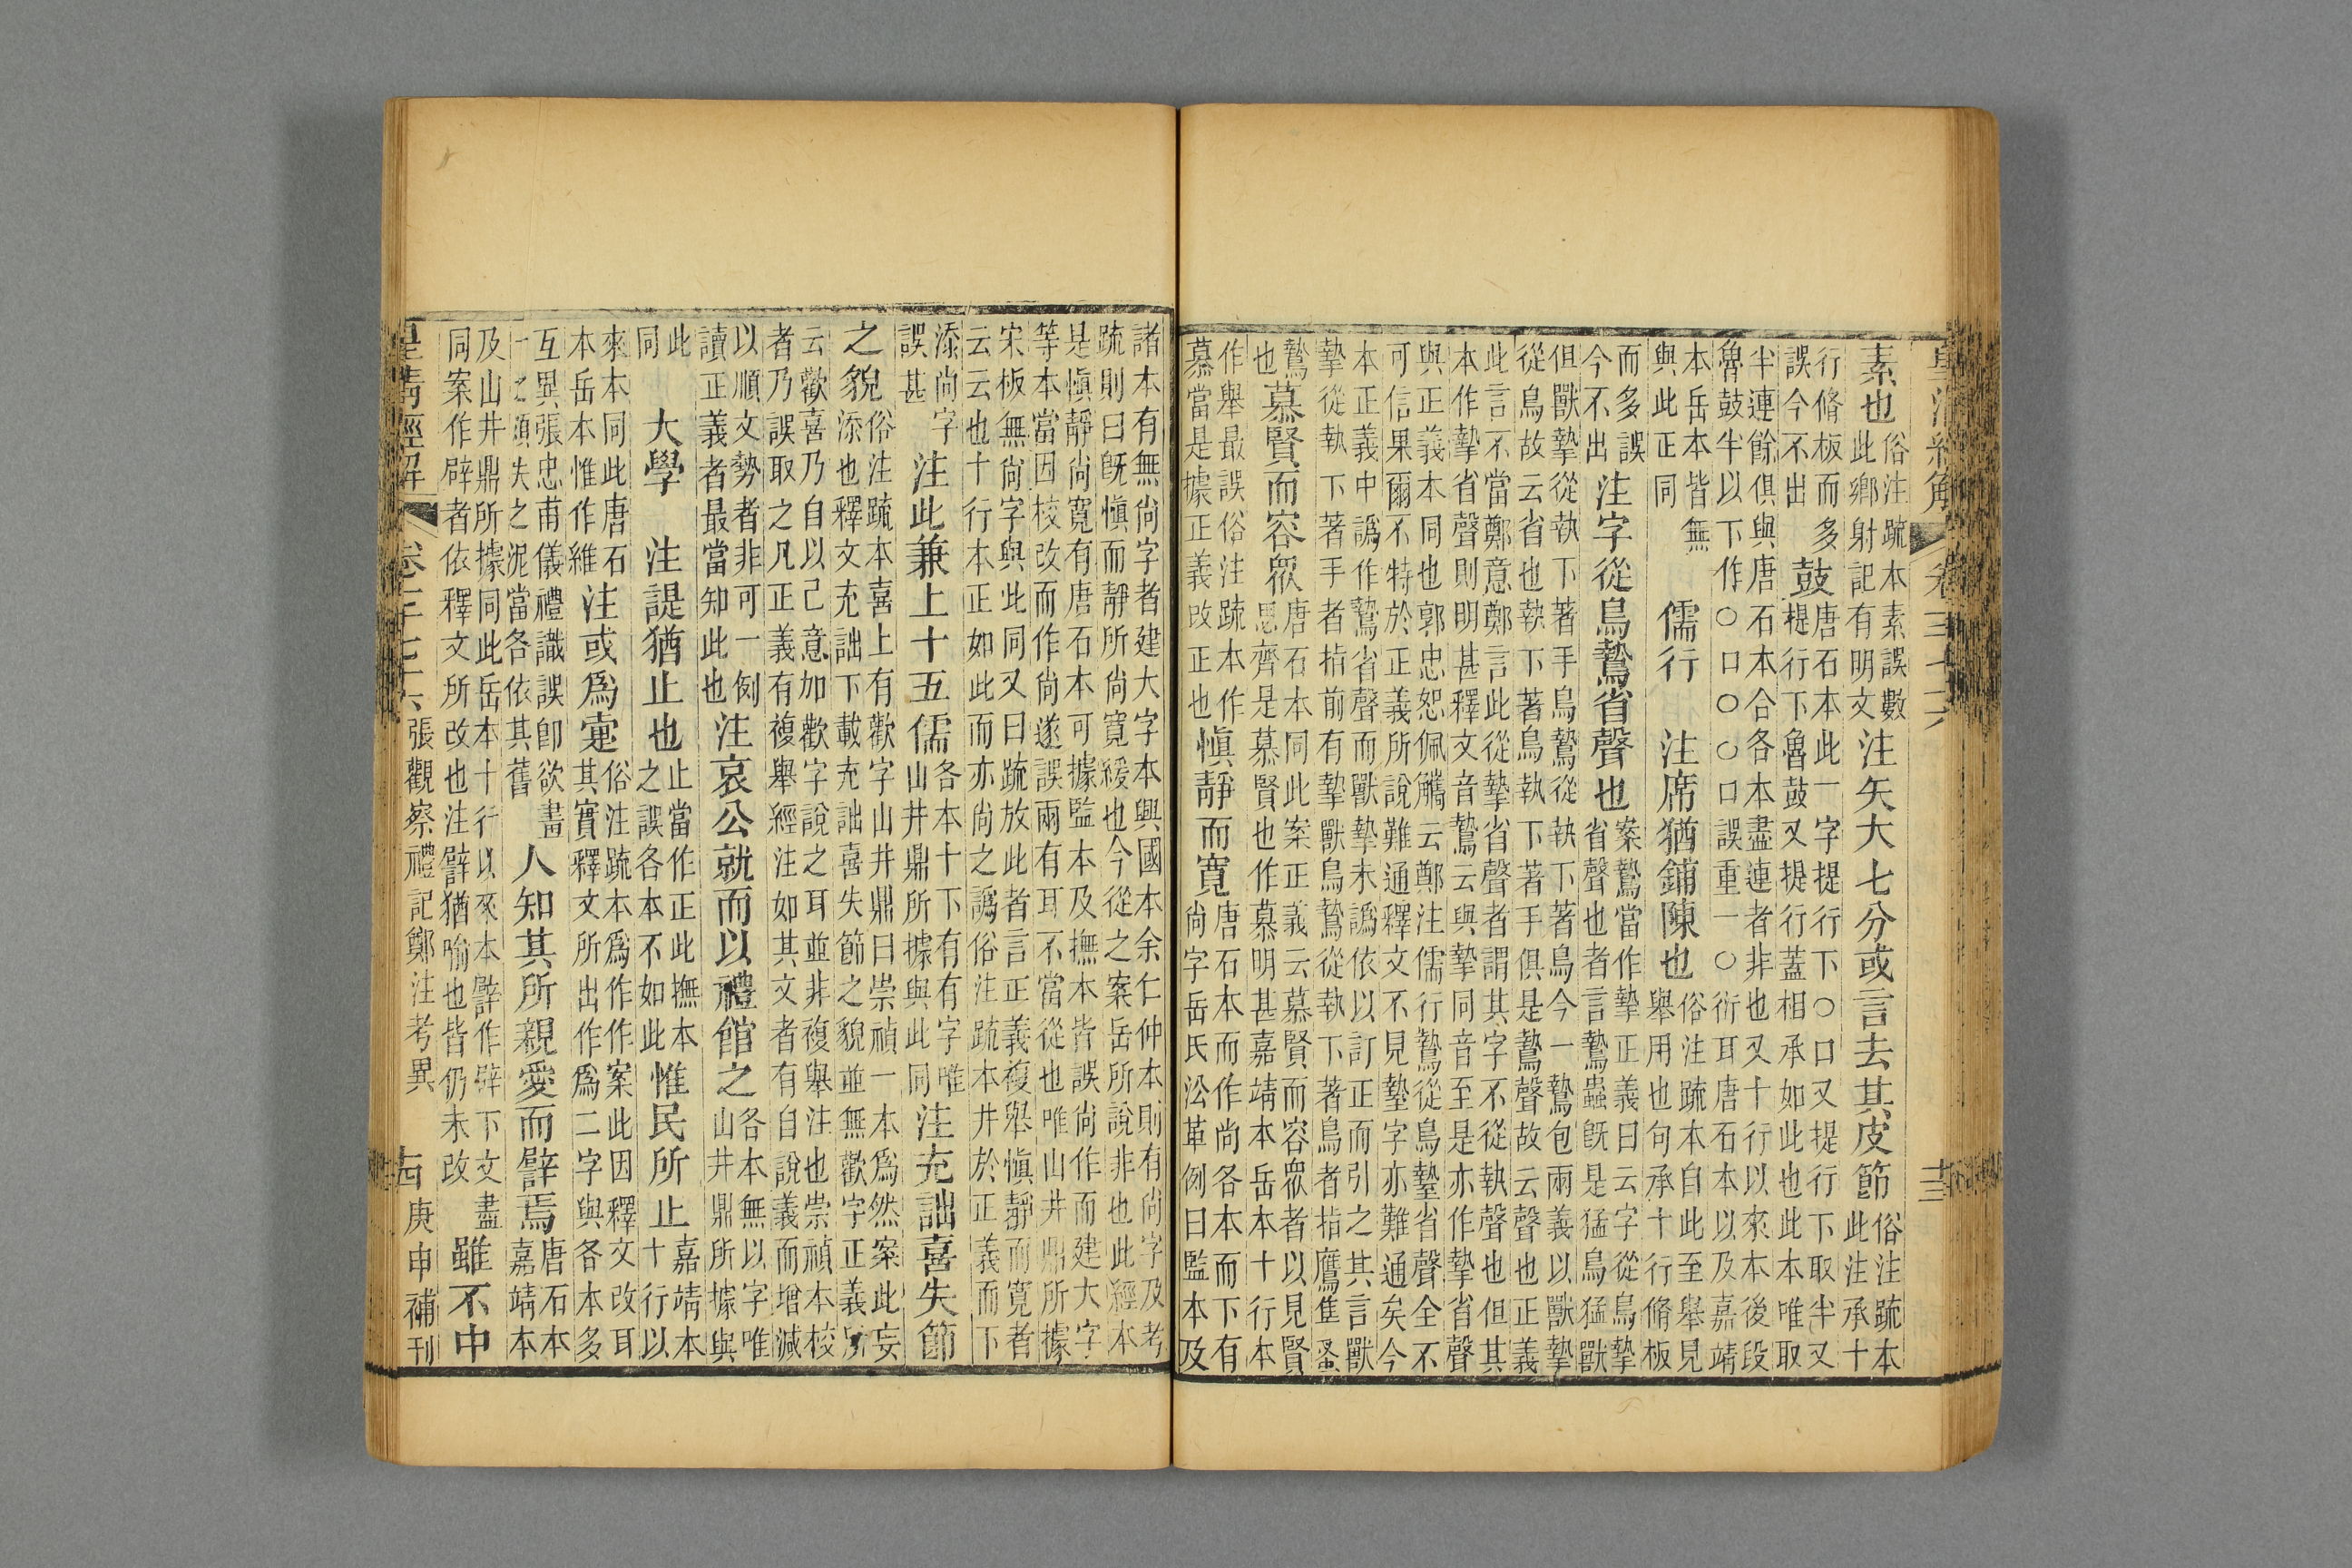 素也
俗注疏本素誤數
此鄉射記有明文
注矢大七分或言去其皮節
俗注疏本
此注承十
行脩板而多
誤今不出
鼓
唐石本此一字提行下○口又提行下取半又
提行下魯鼓又提行蓋相承如此也此本唯取
半連餘俱與唐石本合各本盡連者非也又十行以來本後段
魯鼓半以下作○口○○口誤重一○衍耳唐石本以及嘉靖
本岳本皆無
與此正同
儒行
注席猶鋪陳也
俗注疏本自此至舉見
舉用也句承十行脩板
而多誤
今不出
注字從鳥鷙省聲也
案鷙當作摯正義曰云字從鳥摯
省聲也者言鷙蟲旣是猛鳥猛獸
但獸摯從執下著手鳥鷙從執下著鳥今一鷙包兩義以獸摯
從鳥故云省也執下著鳥執下著手俱是鷙聲故云聲也正義
此言不當鄭意鄭言此從摯省聲者謂其字不從執聲也但其
本作摯省聲則明甚釋文音鷙云與摯同音至是亦作摯省聲
與正義本同也郭忠恕佩觿云鄭注儒行鷙從鳥摯省聲全不
可信果爾不特於正義所說難通釋文不見摯字亦難通矣今
本正義中譌作鷙省聲而獸摯未譌依以訂正而引之其言獸
摯從執下著手者指前有摯獸鳥鷙從執下著鳥者指鷹隼蚤
鷙
也
慕賢而容衆
唐石本同此案正義云慕賢而容衆者以見賢
思齊是慕賢也作慕明甚嘉靖本岳本十行本
作舉最誤俗注疏本作
慕當是據正義改正也
愼靜而寬
唐石本而作尚各本而下有
尚字岳氏㳂革例曰監本及
諸本有無尚字者建大字本興國本余仁仲本則有尚字及考
疏則曰旣愼而靜所尚寬緩也今從之案岳所說非也此經本
是愼靜尚寬有唐石本可據監本及撫本皆誤尚作而建大字
等本當因校改而作尚遂誤兩有耳不當從也唯山井鼎所據
宋板無尚字與此同又曰疏放此者言正義複舉愼靜而寬者
云云也十行本正如此而亦尚之譌俗注疏本并於正義而下
添尚字
誤甚
注此兼上十五儒
各本十下有有字唯
山井鼎所據與此同
注充詘喜失節
之貌
俗注疏本喜上有歡字山井鼎曰崇禎一本爲然案此妄
添也釋文充詘下載充詘喜失節之貌並無歡字正義所
云歡喜乃自以己意加歡字說之耳並非複舉注也崇禎本校
者乃誤取之凡正義有複舉經注如其文者有自說義而增減
以順文勢者非可一例
讀正義者最當知此也
注哀公就而以禮館之
各本無以字唯
山井鼎所據與
此
同
大學
注諟猶止也
止當作正此撫本
之誤各本不如此
惟民所止
嘉靖本
十行以
來本同此唐石
本岳本惟作維
注或爲寁
俗注疏本爲作作案此因釋文改耳
其實釋文所出作爲二字與各本多
互異張忠甫儀禮識誤卽欲畫
一之頗失之泥當各依其舊
人知其所親愛而譬焉
唐石本
嘉靖本
及山井鼎所據同此岳本十行以來本譬作辟下文盡
同案作辟者依釋文所改也注譬猶喻也皆仍未改
雖不中
皇清經解
卷千七十六
張觀察禮記鄭注考異
古
庚申補刊